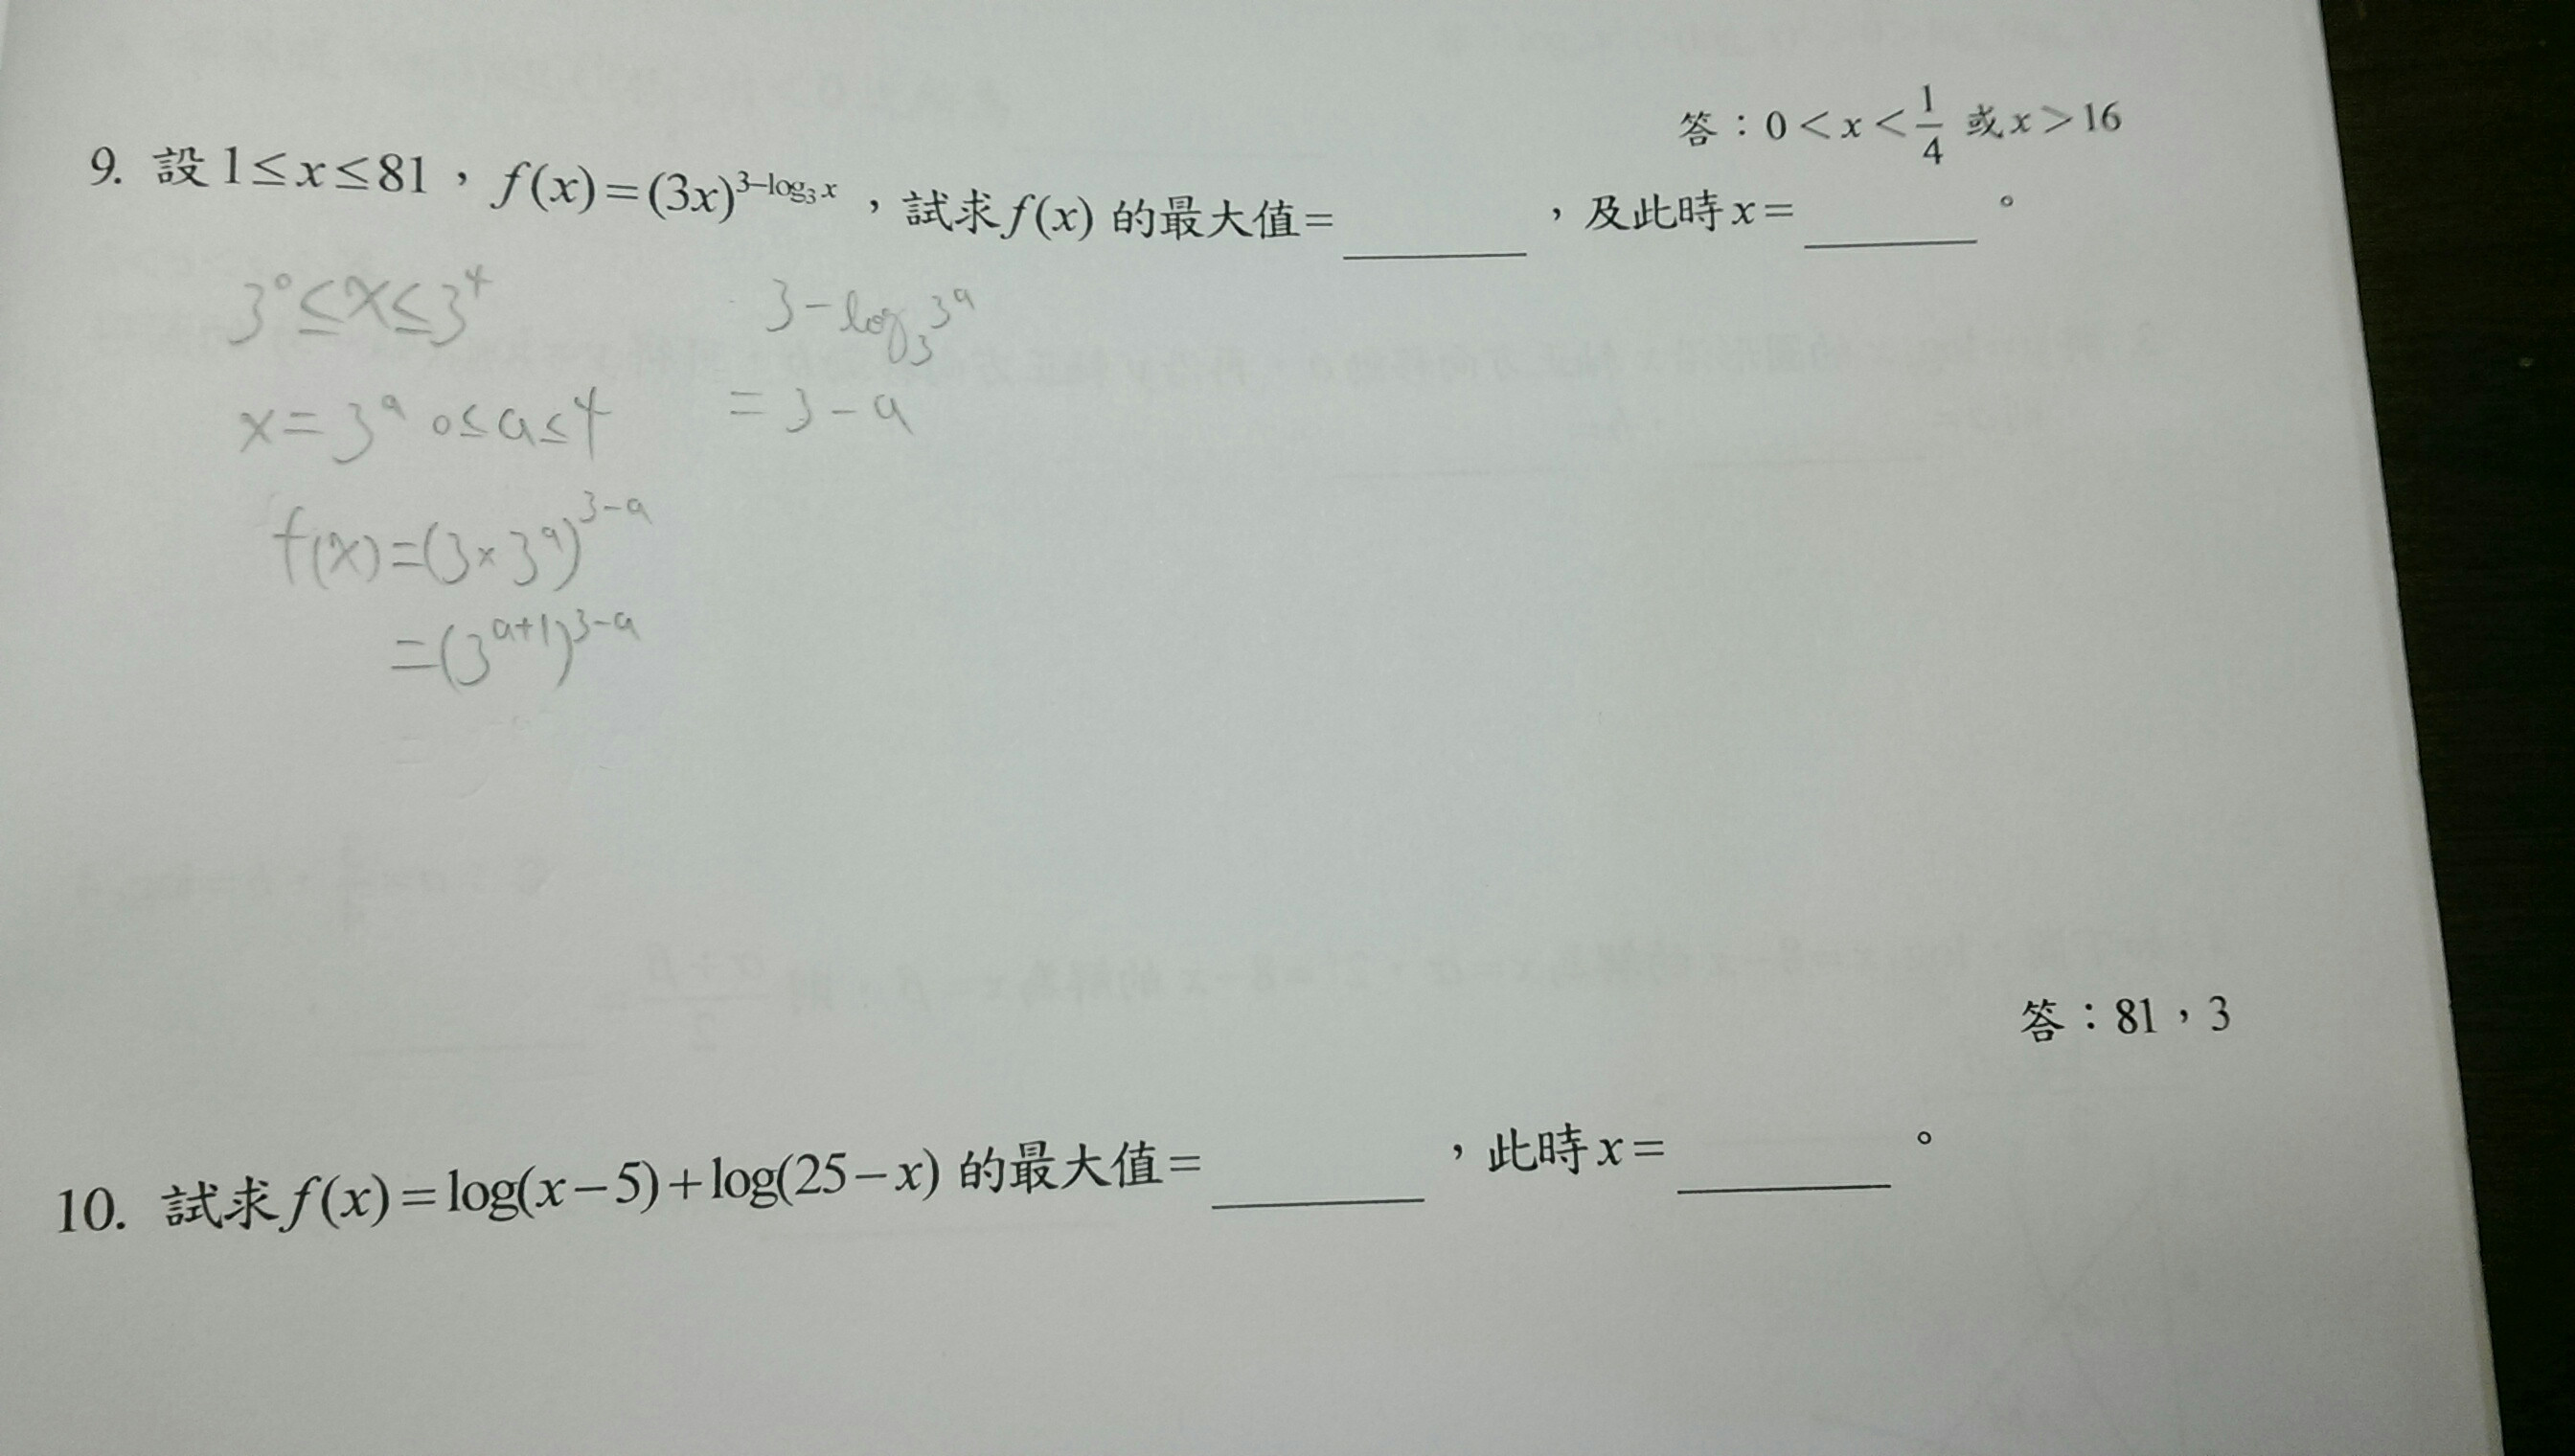 答：0<x<1/4 或x>16
9. 設1≤x≤81，f(x)=(3x)^{3-log₃x}，試求f(x)的最大值=______，及此時x=______。
3⁰≤x≤3⁴
3-log₃3^a
x=3^a 0≤a≤4
=3-a
f(x)=(3×3^a)^{3-a}
=(3^{a+1})^{3-a}
=
答：81，3
10. 試求f(x)=log(x-5)+log(25-x)的最大值=______，此時x=______。